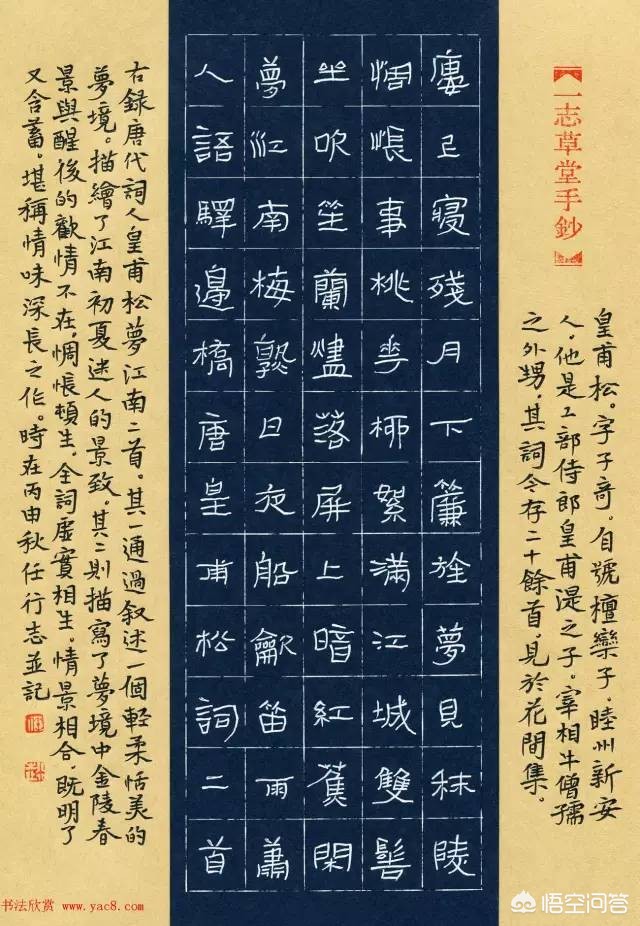 一志草堂手鈔
皇甫松。字子奇。自號檀欒子,睦州新安
人。他是工部侍郎皇甫湜之子。宰相牛僧孺
之外甥,其詞今存二十餘首,見於花間集。
廔上寢殘月下簾旌夢見秣陵
惆悵事桃花柳絮滿江城雙髻
坐吹笙蘭燼落屏上暗紅蕉閑
夢江南梅熟日夜船龡笛雨蕭
人語驛邊橋唐皇甫松詞二首
右錄唐代詞人皇甫松夢江南二首。其一通過叙述一個輕柔恬美的
夢境。描繪了江南初夏迷人的景致,其二則描寫了夢境中金陵春
景與醒後的歡情不在,惆悵頓生。全詞虛實相生。情景相合,既明了
又含蓄。堪稱情味深長之作。時在丙申秋任行志並記
书法欣赏 www.yac8.com
悟空问答